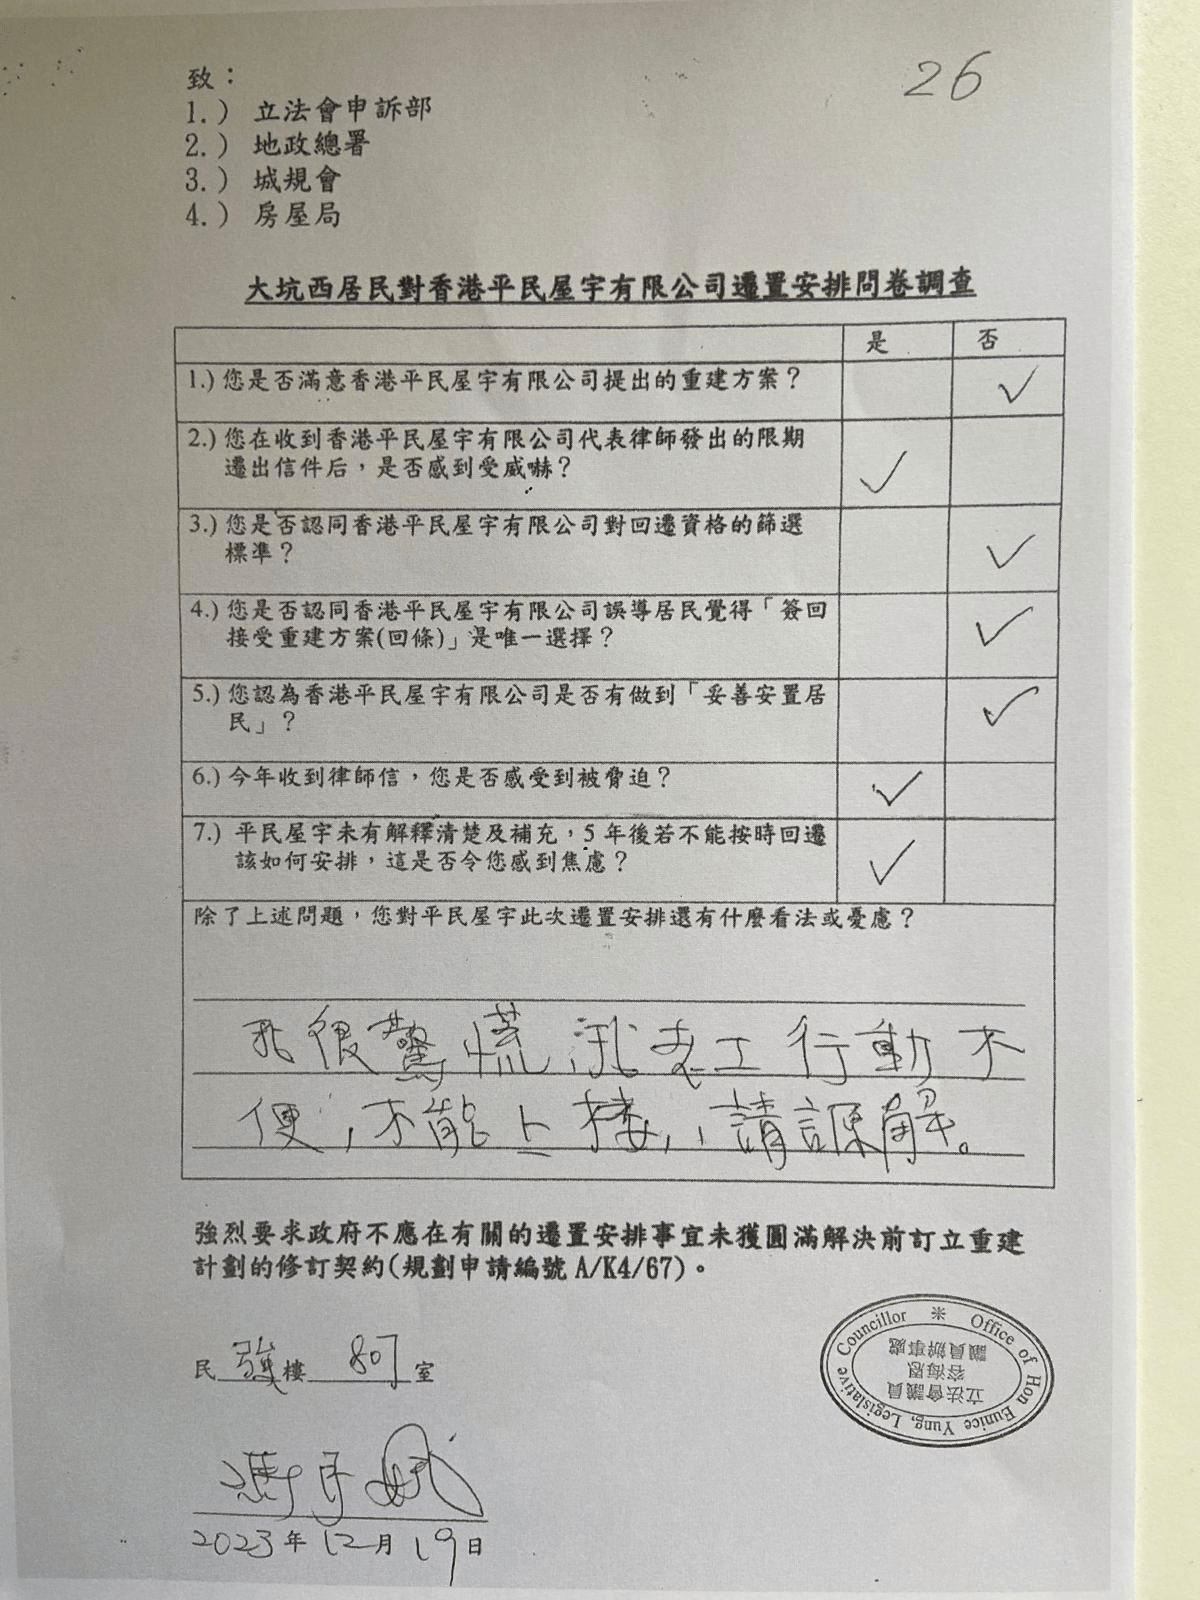 26
致：
1.) 立法會申訴部
2.) 地政總署
3.) 城規會
4.) 房屋局
大坑西居民對香港平民屋宇有限公司遷置安排問卷調查
是 否
1.) 您是否滿意香港平民屋宇有限公司提出的重建方案？ ✓
2.) 您在收到香港平民屋宇有限公司代表律師發出的限期
遷出信件后，是否感到受威嚇？ ✓
3.) 您是否認同香港平民屋宇有限公司對回遷資格的篩選
標準？ ✓
4.) 您是否認同香港平民屋宇有限公司誤導居民覺得「簽回
接受重建方案(回條)」是唯一選擇？ ✓
5.) 您認為香港平民屋宇有限公司是否有做到「妥善安置居
民」？ ✓
6.) 今年收到律師信，您是否感受到被脅迫？ ✓
7.) 平民屋宇未有解釋清楚及補充，5 年後若不能按時回遷
該如何安排，這是否令您感到焦慮？ ✓
除了上述問題，您對平民屋宇此次遷置安排還有什麼看法或憂慮？
我很驚慌, 我 行動不
便, 不能上楼, 請諒解。
強烈要求政府不應在有關的遷置安排事宜未獲圓滿解決前訂立重建
計劃的修訂契約(規劃申請編號 A/K4/67)。
民 強 樓 807 室
Office of Hon Eunice Yung, Legislative Councillor
立法會議員
容海恩
議員辦事處
馮
2023年 12月 19日